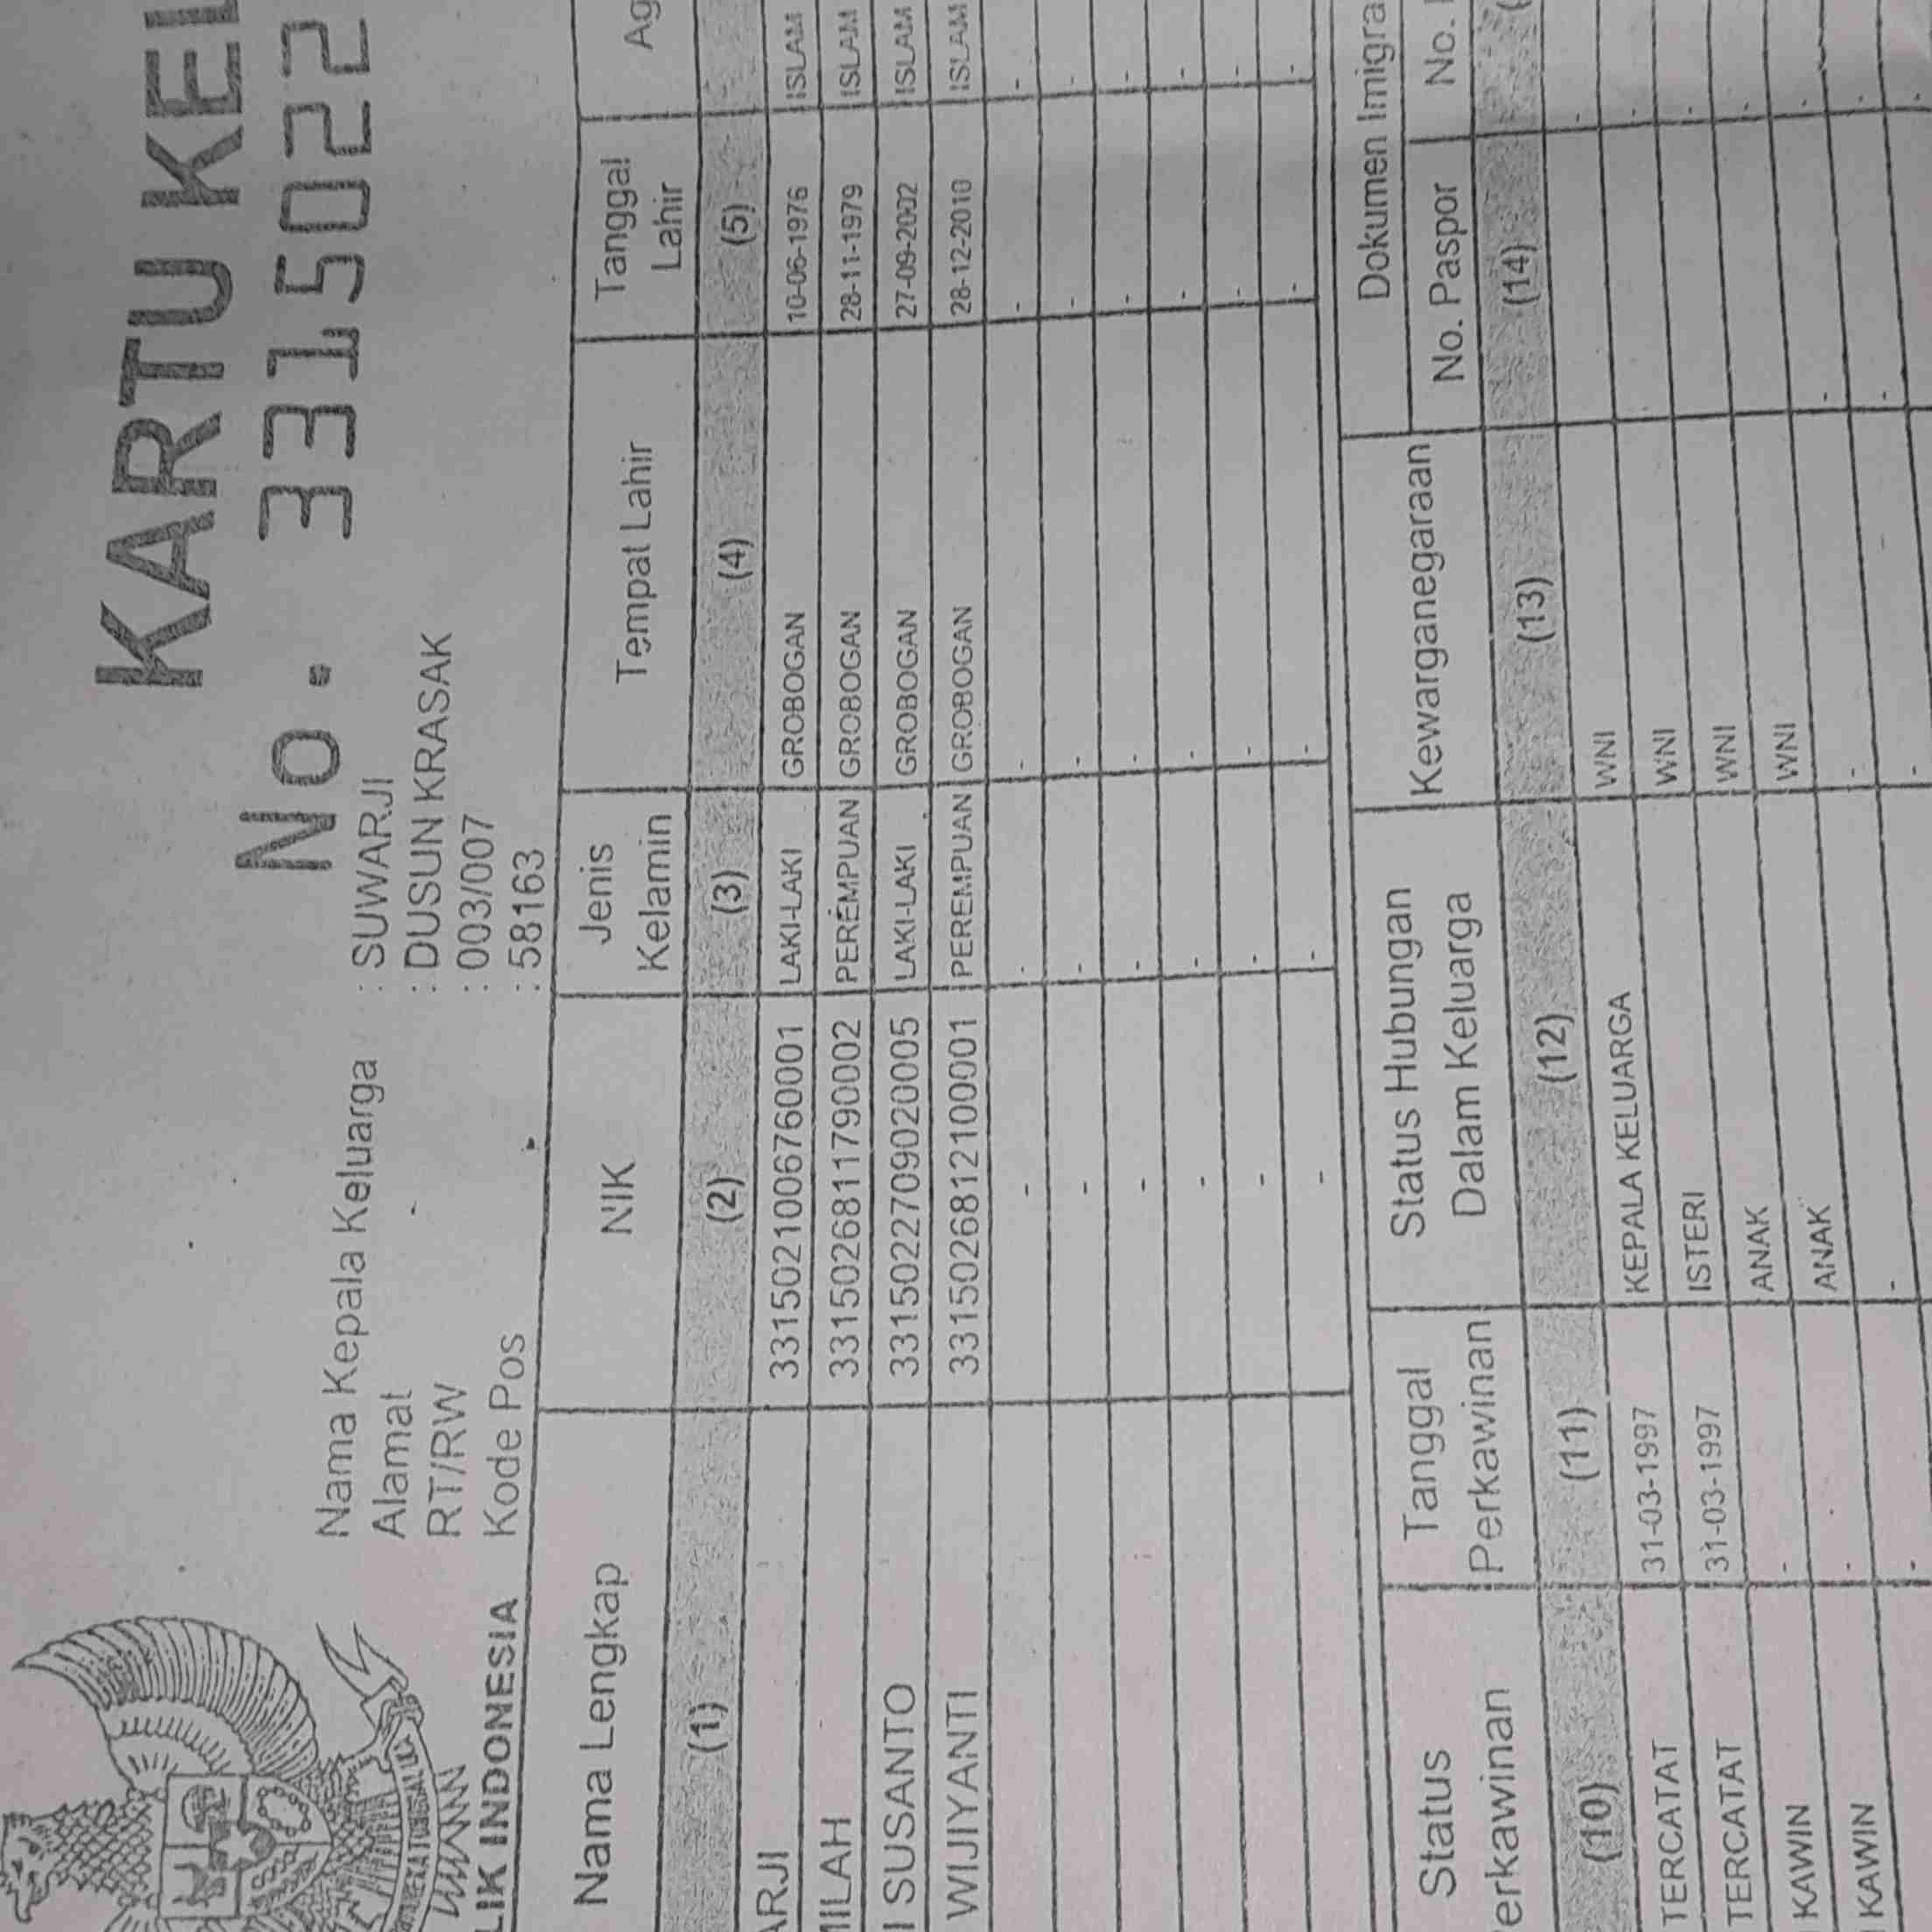 KARTU KEL
No. 3315022
LIK INDONESIA
Nama Kepala Keluarga : SUWARJI
Alamat : DUSUN KRASAK
RT/RW : 003/007
Kode Pos : 58163
Nama Lengkap NIK Jenis Kelamin Tempat Lahir Tanggal Lahir Ag
(1) (2) (3) (4) (5)
ARJI 3315021006760001 LAKI-LAKI GROBOGAN 10-06-1976 ISLAM
MILAH 3315026811790002 PEREMPUAN GROBOGAN 28-11-1979 ISLAM
I SUSANTO 3315022709020005 LAKI-LAKI GROBOGAN 27-09-2002 ISLAM
WIJIYANTI 3315026812100001 PEREMPUAN GROBOGAN 28-12-2010 ISLAM
- - - - -
- - - - -
- - - - -
- - - - -
- - - - -
- - - - -
Status Perkawinan Tanggal Perkawinan Status Hubungan Dalam Keluarga Kewarganegaraan Dokumen Imigra
No. Paspor No.
(10) (11) (12) (13) (14)
TERCATAT 31-03-1997 KEPALA KELUARGA WNI -
TERCATAT 31-03-1997 ISTERI WNI -
KAWIN - ANAK WNI -
KAWIN - ANAK WNI -
- - - - -